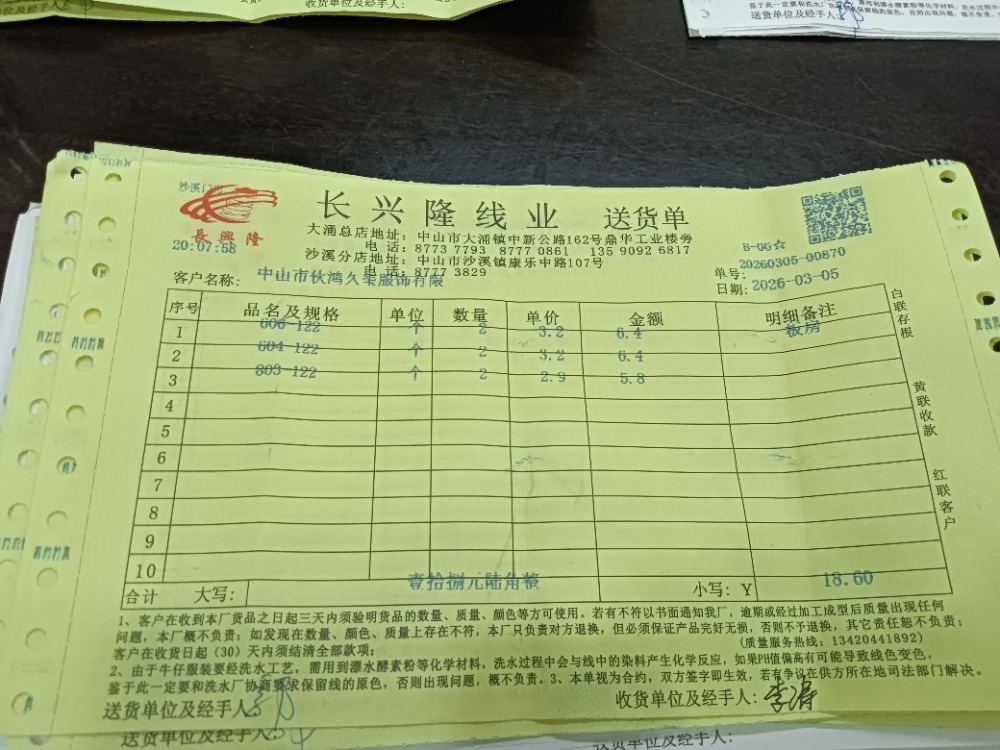 收货单位及经手人:
送货单位及经手人:
沙溪门
長興隆
20:07:58
长兴隆线业 送货单
大涌总店地址：中山市大涌镇中新公路162号鼎华工业楼旁
电 话：8773 7793 8777 0861 135 9092 6817
沙溪分店地址：中山市沙溪镇康乐中路107号
电 话：8777 3829
B-06☆
单号：20260305-00870
日期：2026-03-05
客户名称：中山市伙鸿久 服饰有限
序号 品名及规格 单位 数量 单价 金额 明细备注
1 606-122 个 2 3.2 6.4 板房
2 604-122 个 2 3.2 6.4
3 803-122 个 2 2.9 5.8
4
5
6
7
8
9
10
合计 大写： 壹拾捌元陆角整 小写：Y 18.60
白联存根
黄联收款
红联客户
1、客户在收到本厂货品之日起三天内须验明货品的数量、质量、颜色等方可使用。若有不符以书面通知我厂，逾期或经过加工成型后质量出现任何
问题，本厂概不负责；如发现在数量、颜色、质量上存在不符，本厂只负责对方退换，但必须保证产品完好无损，否则不予退换，其它责任恕不负责；
客户在收货日起（30）天内须结清全部款项； （质量服务热线：13420441892）
2、由于牛仔服装要经洗水工艺，需用到漂水酵素粉等化学材料，洗水过程中会与线中的染料产生化学反应，如果PH值偏高有可能导致线色变色，
鉴于此一定要和洗水厂协商要求保留线的原色，否则出现问题，概不负责。3、本单视为合约，双方签字即生效，若有争议在供方所在地司法部门解决。
送货单位及经手人： 收货单位及经手人：李涛
送货单位及经手人： 收货单位及经手人：